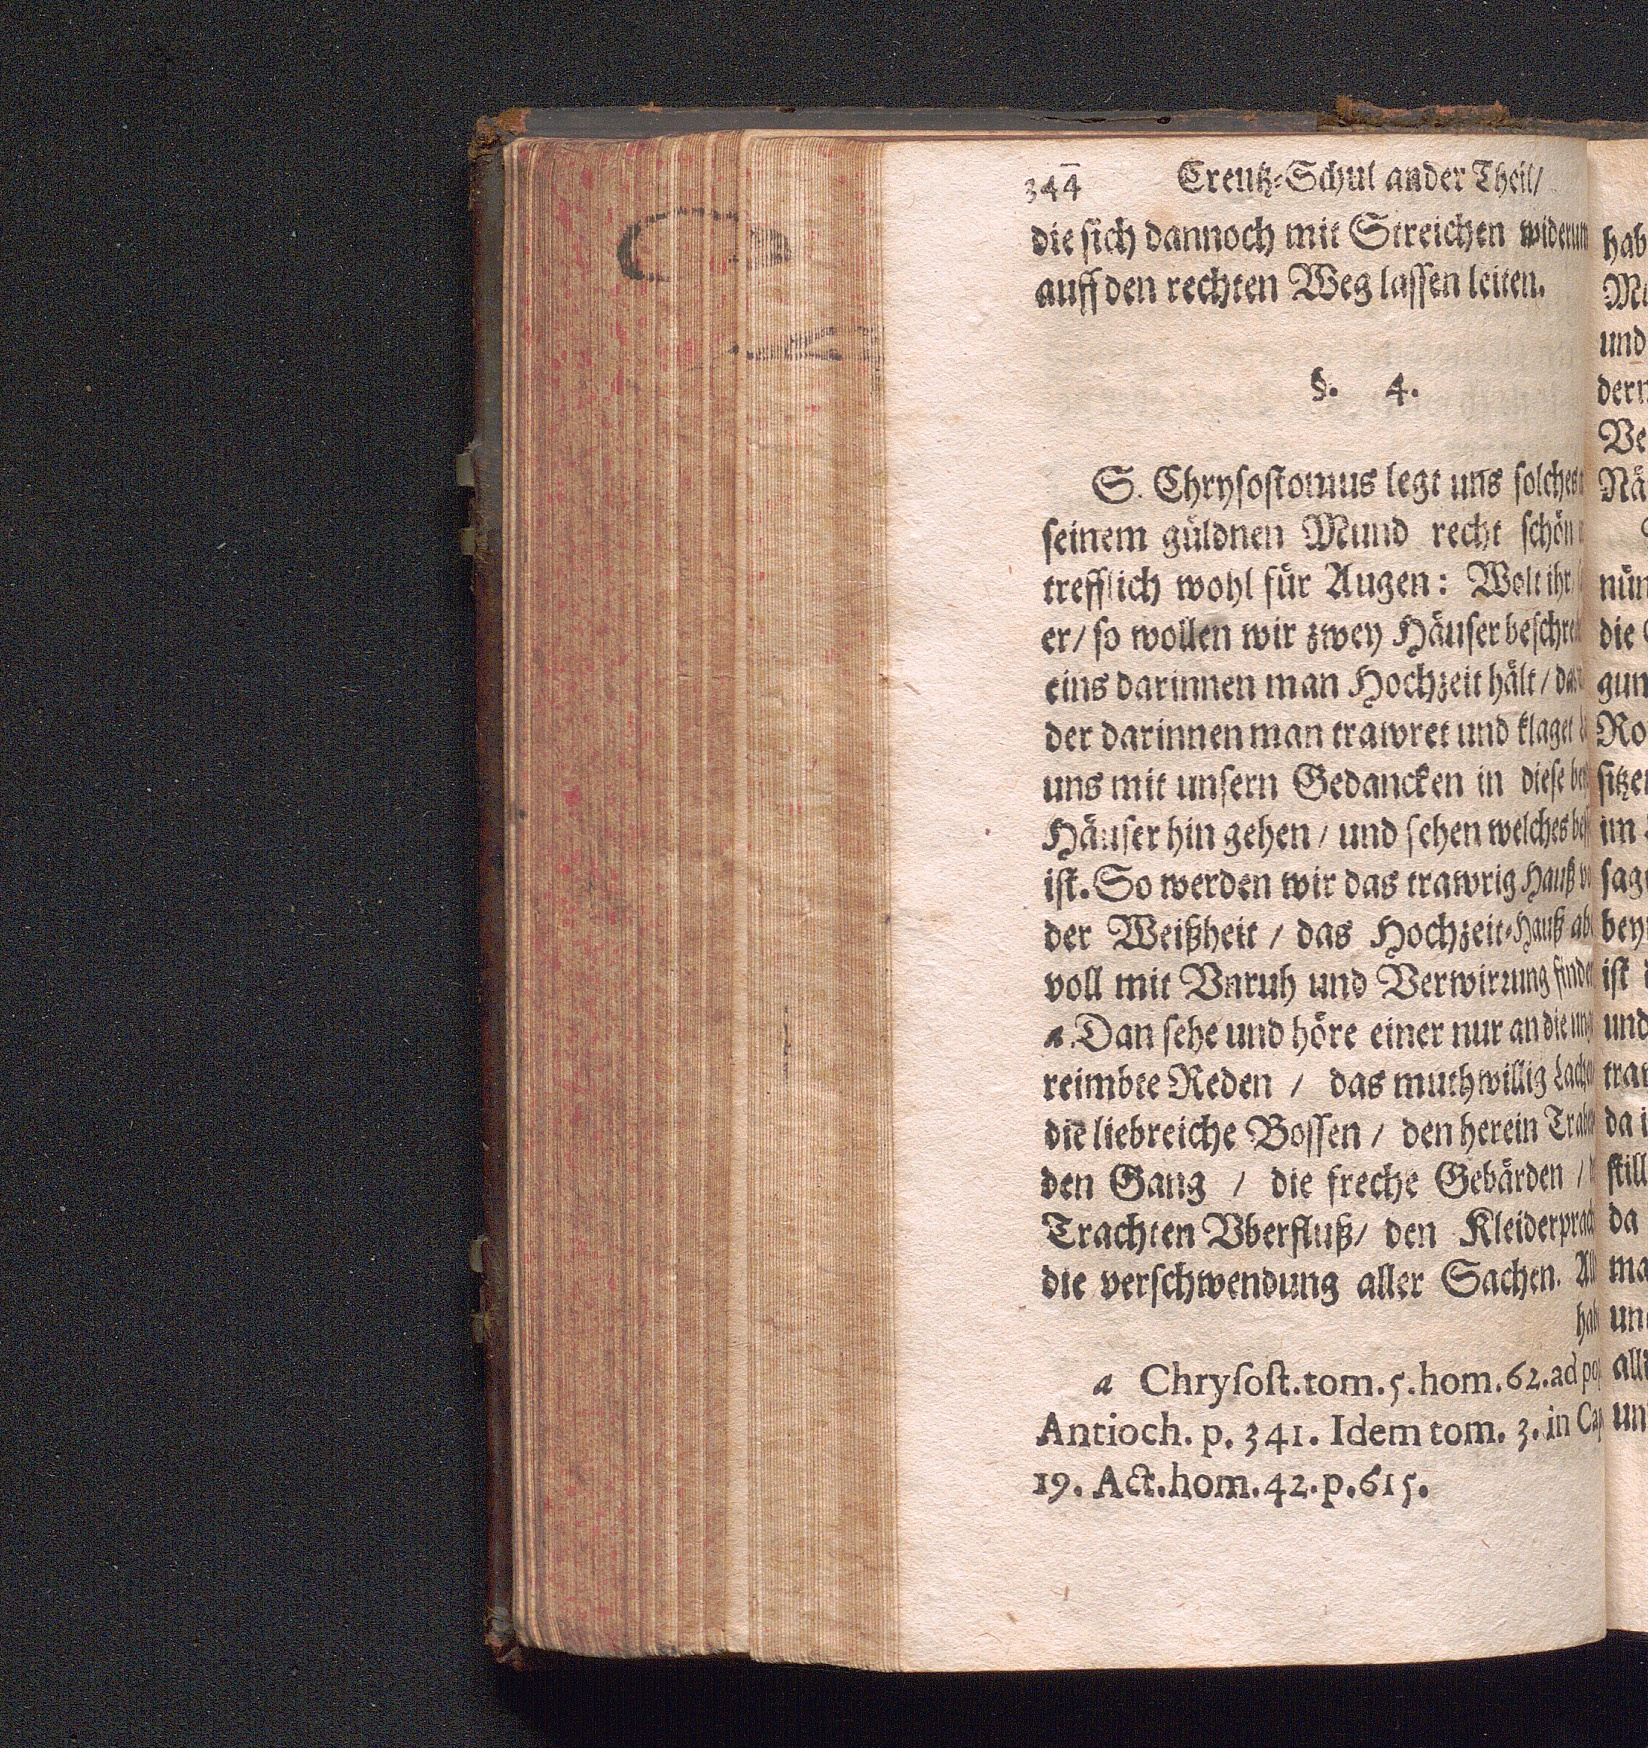 344 Creutz-Schul ander Theil/
die sich dannoch mit Streichen widerum
auff den rechten Weg lassen leiten.
§. 4.
S. Chrysostomus legt uns solches
seinem güldnen Mund recht schön
trefflich wohl für Augen: Wolt ihr
er/ so wollen wir zwey Häuser beschre
eins darinnen man Hochzeit hält /
der darinnen man trawret und klaget
uns mit unsern Gedancken in diese
Häuser hin gehen / und sehen welches
ist. So werden wir das trawrig Hauß
der Weißheit / das Hochzeit-Hauß ab
voll mit Vnruh und Verwirrung finde
a. Dan sehe und höre einer nur an die
reimbte Reden / das muthwillig Lache
die liebreiche Bossen / den herein Trab
den Gang / die freche Gebärden /
Trachten Vberfluß/ den Kleiderprac
die verschwendung aller Sachen. All
hab
a Chrysost. tom. 5. hom. 62. ad po
Antioch. p. 341. Idem tom. 3. in Cap
19. Act. hom. 42. p. 615.
hab
und
dern
Ve
Nä
nün
die
gun
Ro
sitzen
im
sag
bey
ist
und
tra
da i
still
da
ma
un
all
un